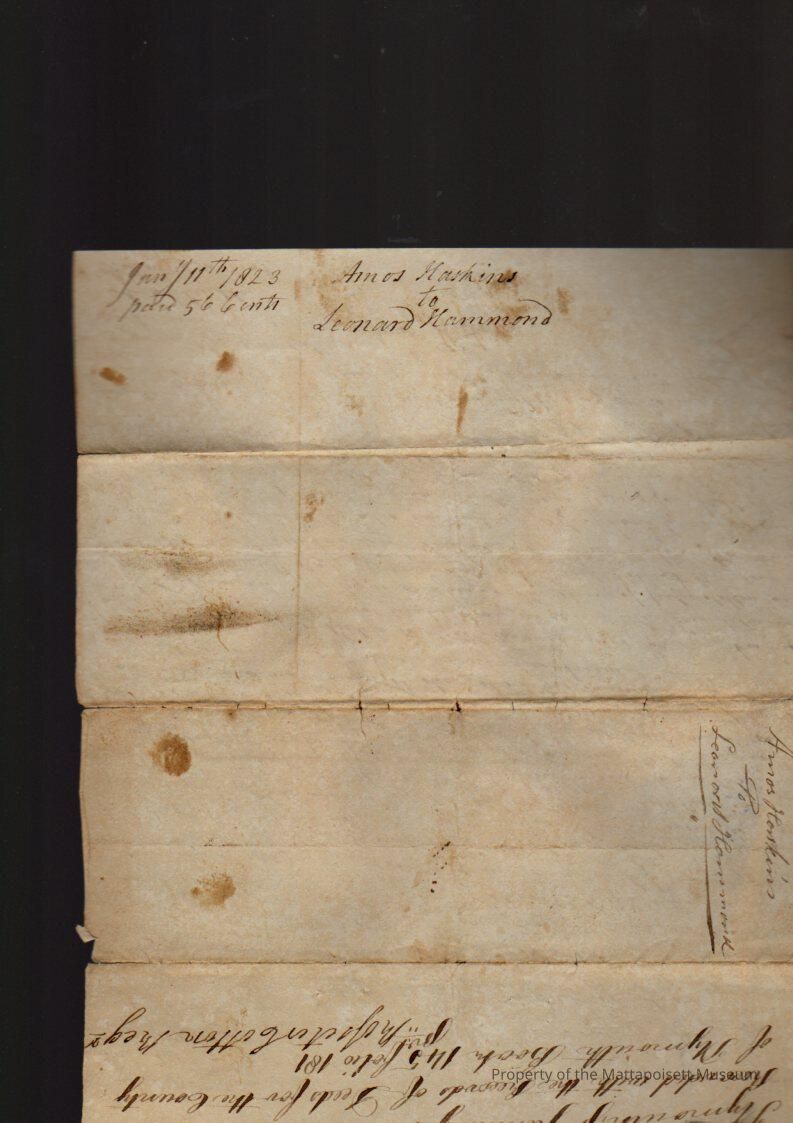 Jany 11th 1823
paid 56 Cents
Amos Haskins
to
Leonard Hammond
Amos Haskins
To
Leonard Hammond
Plymouth
Recorded with the Records of Deeds for the County
of Plymouth Book 148 folio 181
Rosseter Cotton Regr
Property of the Mattapoisett Museum